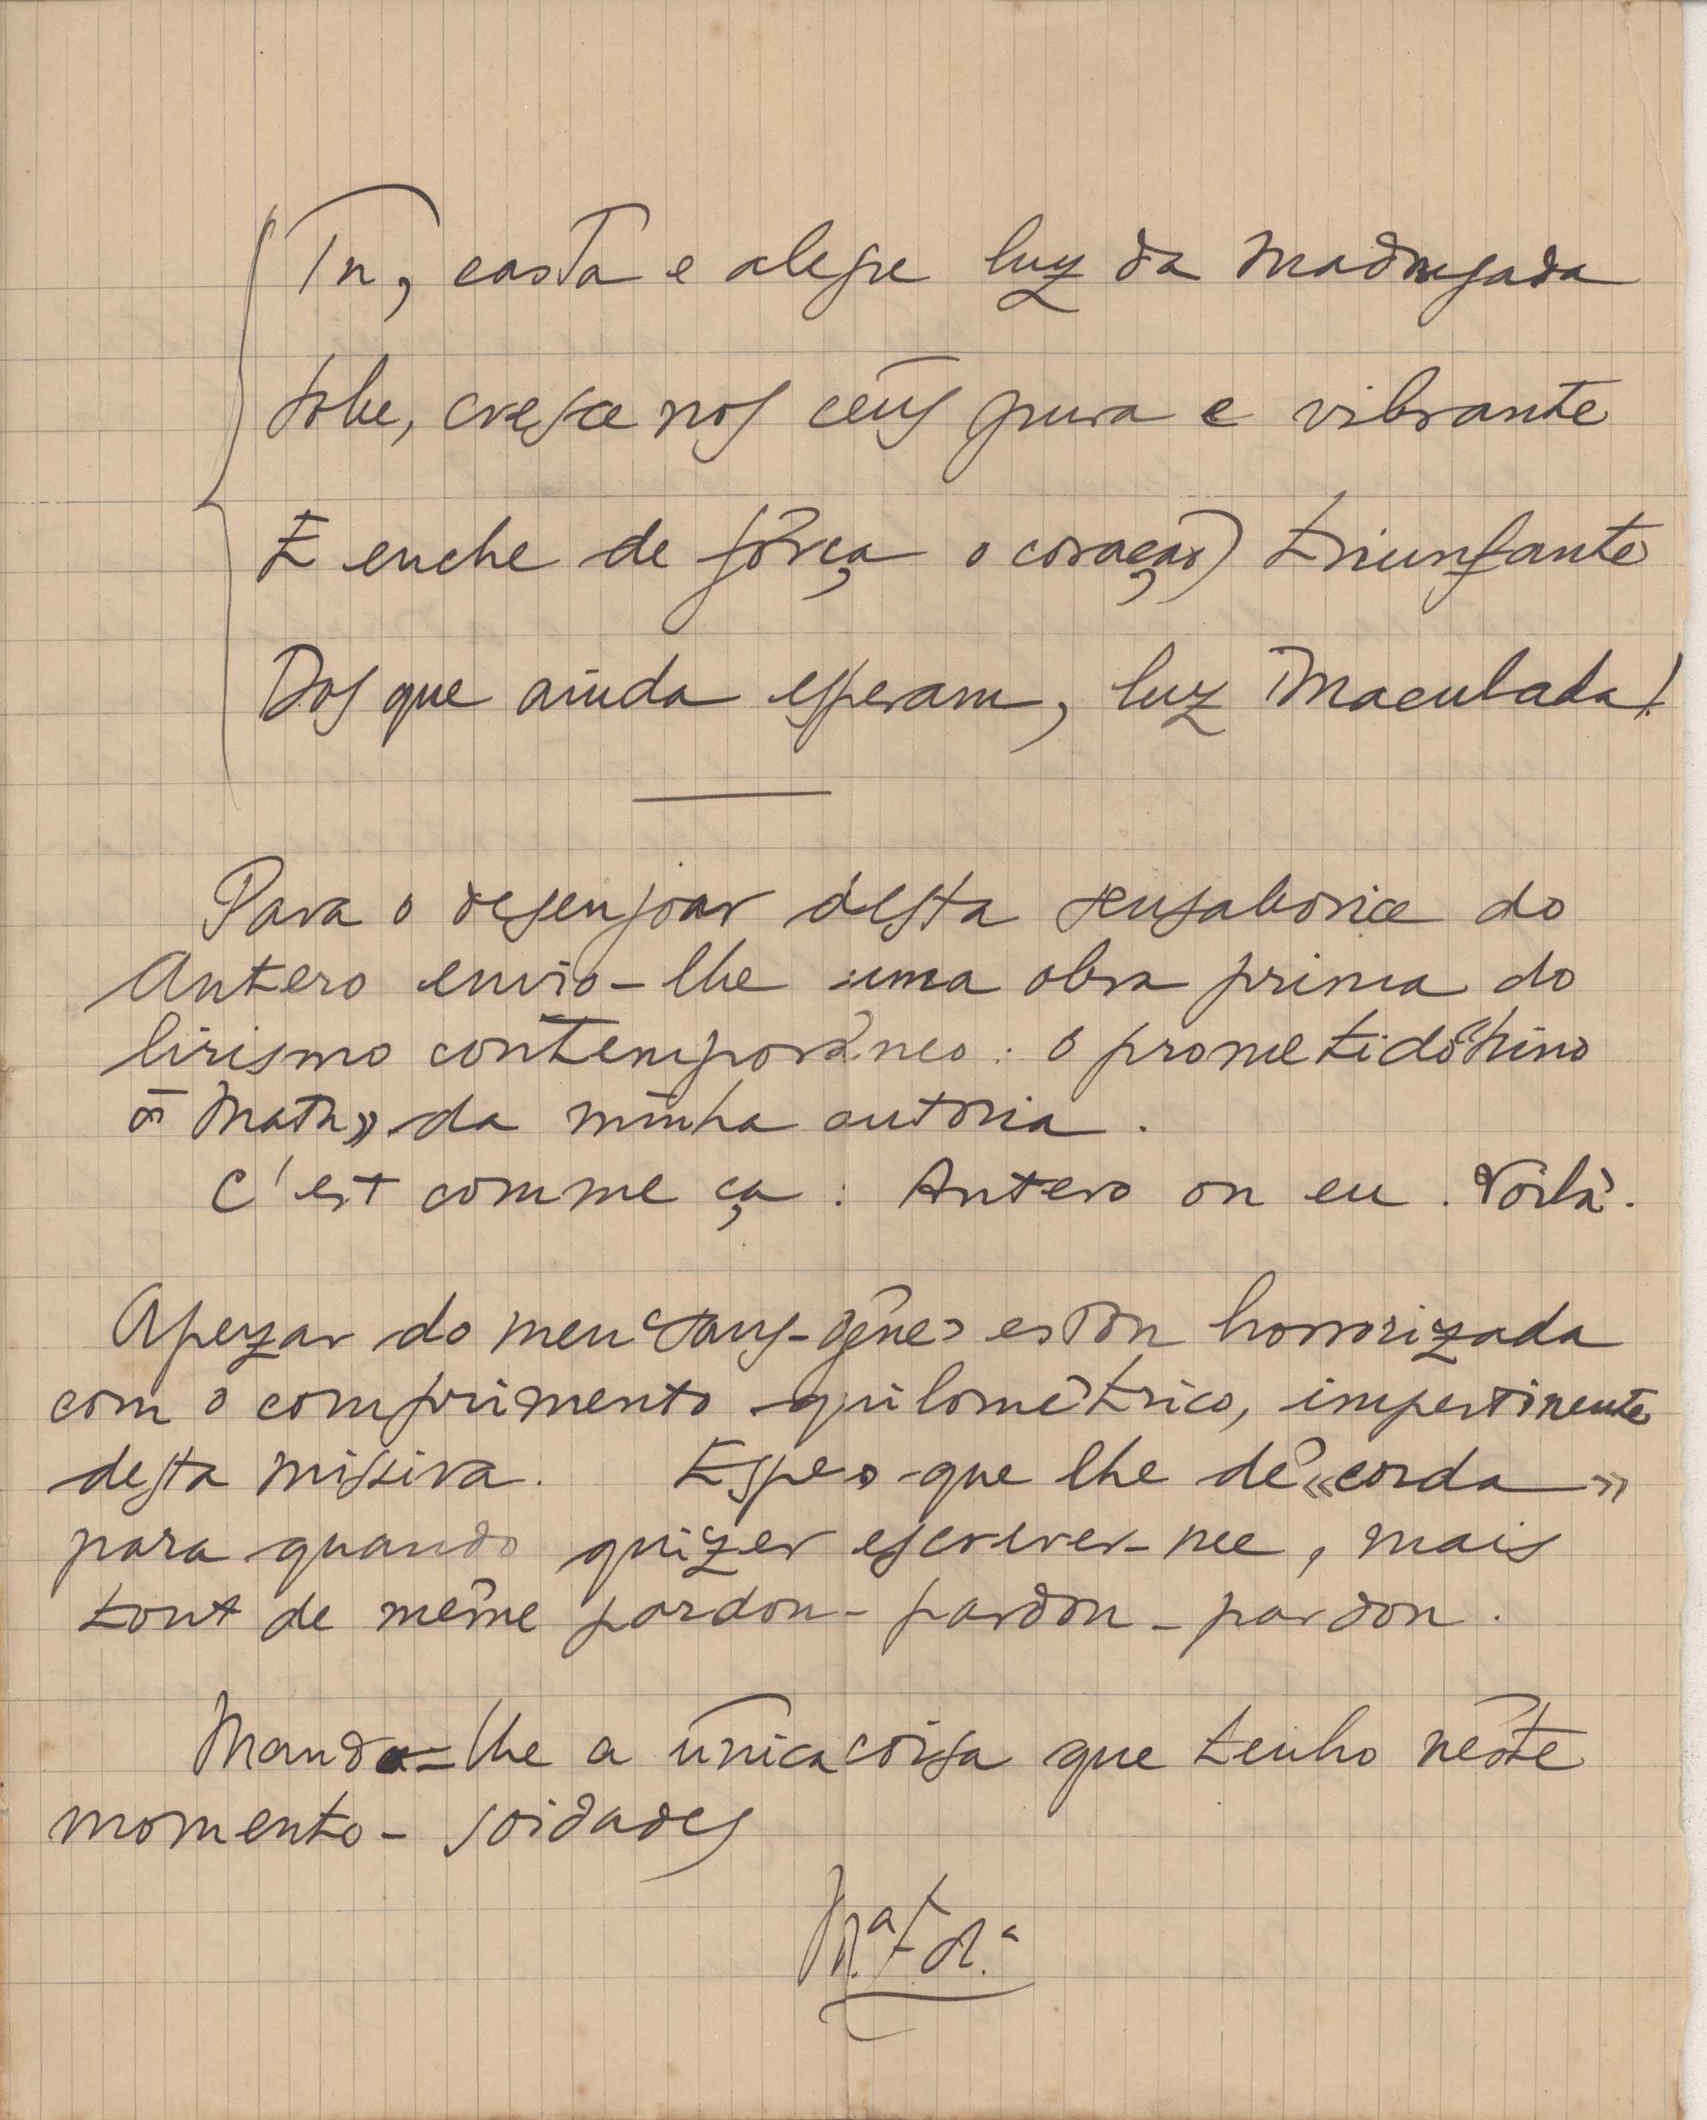 Tu, casta e alegre luz da madrugada
sobe, cresce nos céus pura e vibrante
E enche de fôrça o coração triunfante
Dos que ainda esperam, luz imaculada!
Para o desenjoar desta sensaboria do
Antero envio-lhe uma obra prima do
lirismo contemporâneo: o prometido "hino
á Mata» da minha autoria.
C'est comme ça: Antero ou eu. Voilà.
Apezar do meu «sans-gêne» estou horrorizada
com o comprimento quilométrico, impertinente
desta missiva. Espero que lhe dê «corda»
para quando quizer escrever-me, mais
tout de même pardon - pardon - pardon.
Mando-lhe a única coisa que tenho nêste
momento - soidades